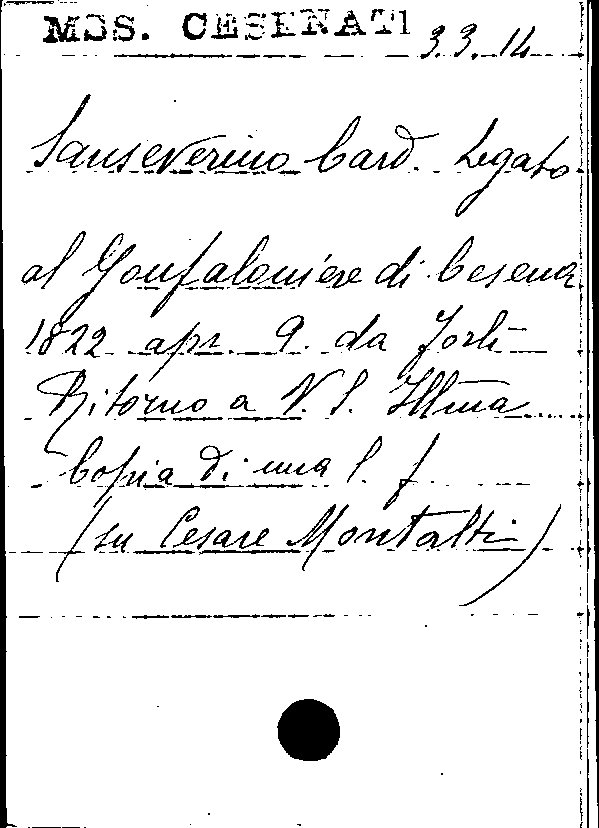 MSS. CESENATI 3.3.14
Sanseverino Card. Legato
al Gonfaloniere di Cesena
1822 apr. 9. da Forlì
Ritorno a V. S. Illma
Copia di una l. f.
(su Cesare Montalti)